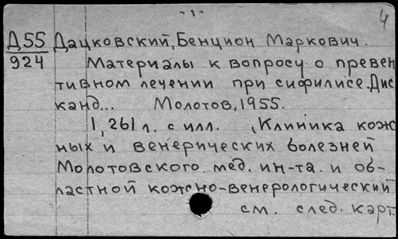 -1-
4
Д55 Дацковский, Бенцион Маркович.
924 Материалы к вопросу о превен
тивном лечении при сифилисе. Дис
канд... Молотов, 1955.
1, 261 л. с илл. , Клиника кож
ных и венерических болезней
Молотовского мед. ин-та. и об-
ластной кожно-венерологический
см. след. карт.